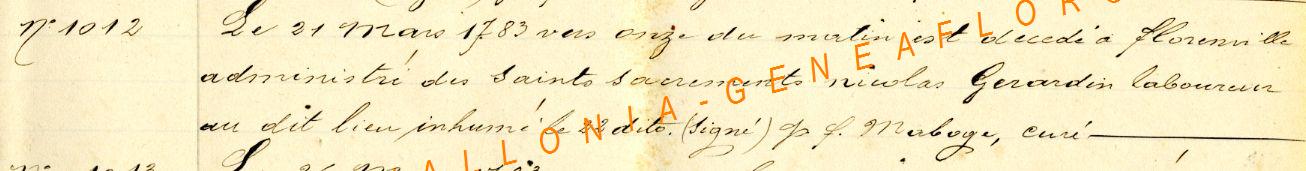 N° 1012 Le 21 Mars 1783 vers onze du matin est décédé à florenville
administré des saints sacrements nicolas Gerardin laboureur
au dit lieu inhumé le 22 dito. (Signé) J. f. Maboge, curé
WALLONIA-GENEAFLORE
N° 1013 Le